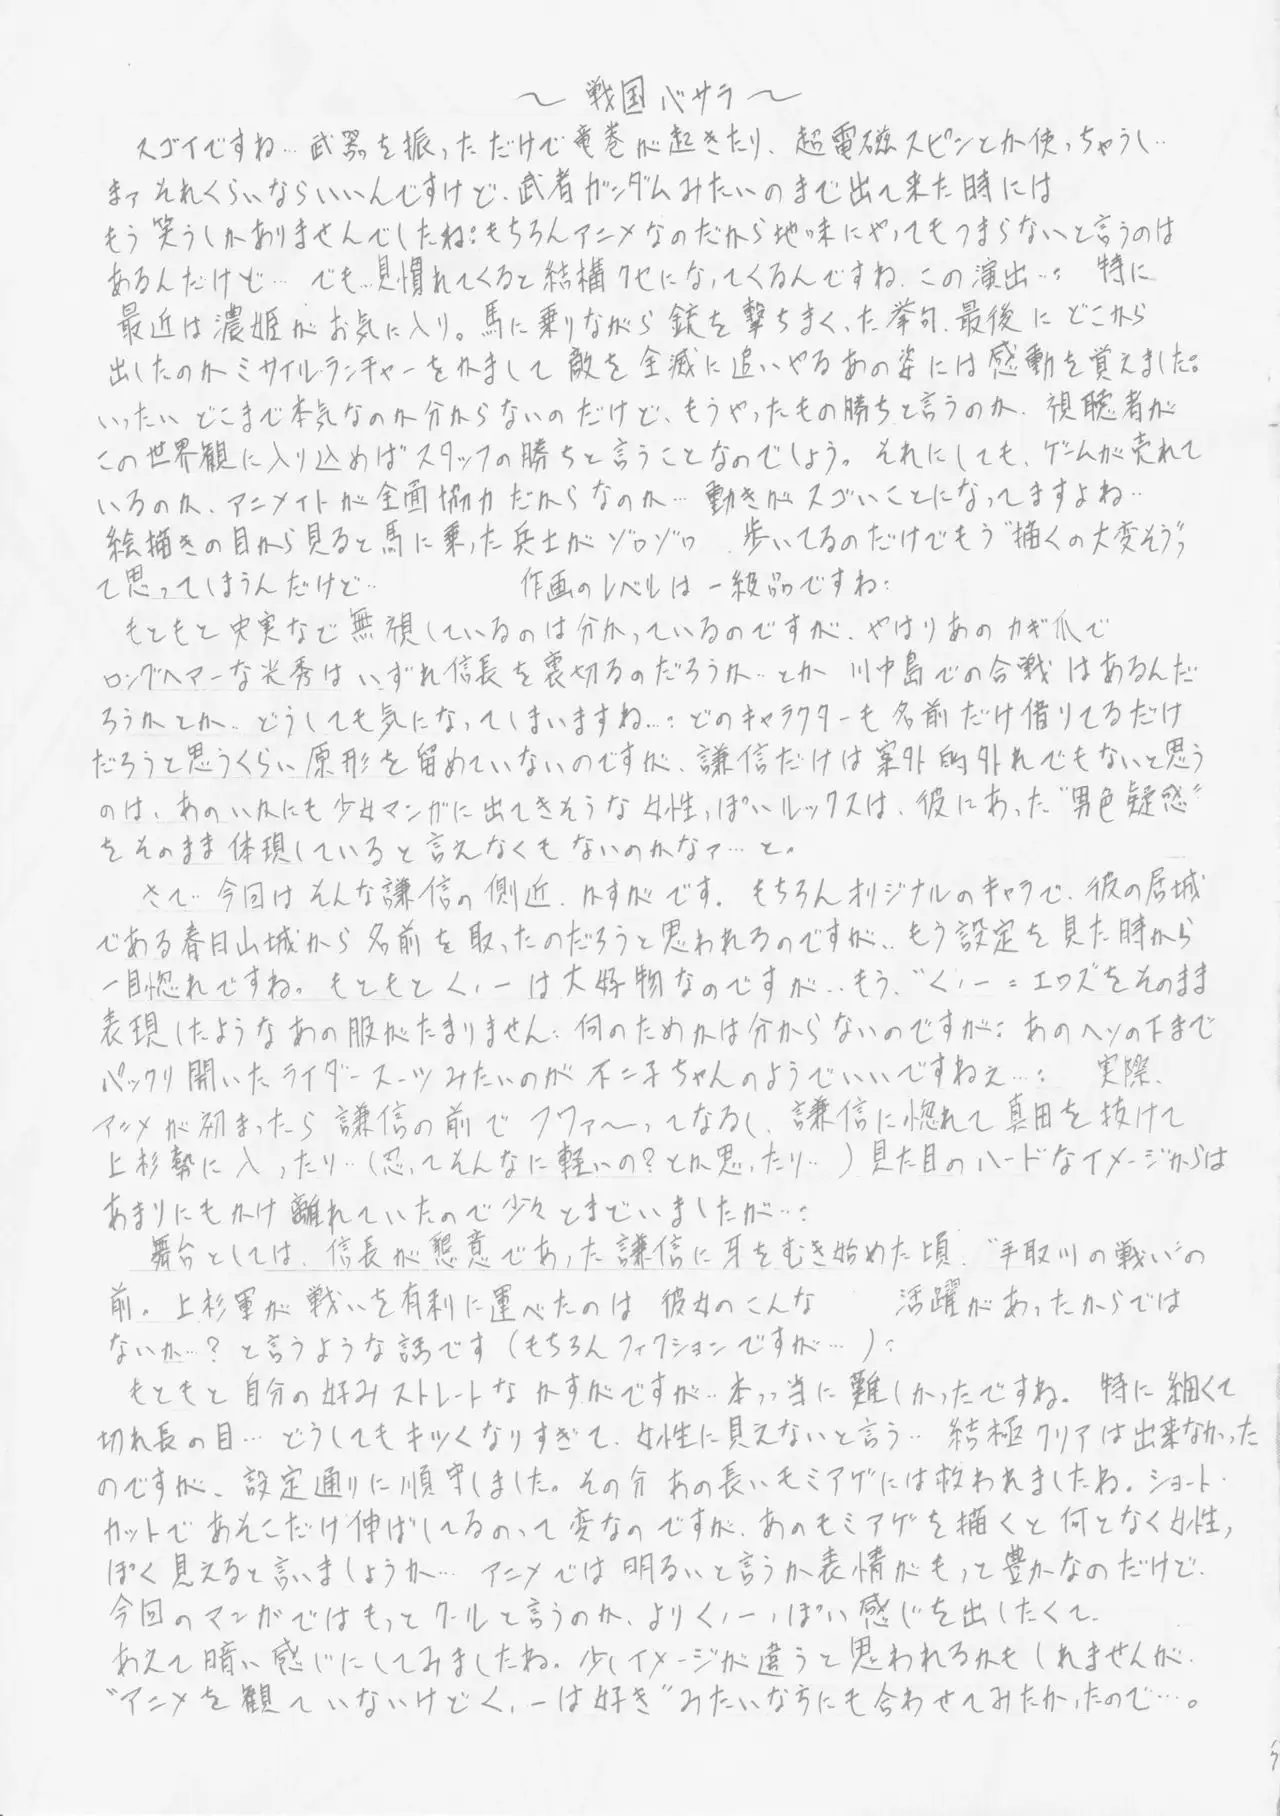 ～戦国バサラ～
スゴイですね… 武器を振っただけで竜巻が起きたり、超電磁スピンとか使っちゃうし…
まァそれくらいならいいんですけど、武者ガンダムみたいのまで出て来た時には
もう笑うしかありませんでしたね: もちろんアニメなのだから地味にやってもつまらないと言うのは
あるんだけど… でも…見慣れてくると結構クセになってくるんですね、この演出…: 特に
最近は濃姫がお気に入り。馬に乗りながら銃を撃ちまくった挙句、最後にどこから
出したのかミサイルランチャーをかまして敵を全滅に追いやるあの姿には感動を覚えました。
いったいどこまで本気なのか分からないのだけど、もうやったもの勝ちと言うのか、視聴者が
この世界観に入り込めばスタッフの勝ちと言うことなのでしょう。それにしても、ゲームが売れて
いるのか、アニメイトが全面協力だからなのか… 動きがスゴいことになってますよね…
絵描きの目から見ると馬に乗った兵士がゾロゾロ 歩いてるのだけでもう“描くの大変そう”
て思ってしまうんだけど… 作画のレベルは一級品ですね:
もともと史実など無視しているのは分かっているのですが、やはりあのカギ爪で
ロングヘアーな光秀はいずれ信長を裏切るのだろうか…とか川中島での合戦はあるんだ
ろうかとか… どうしても気になってしまいますね…: どのキャラクターも名前だけ借りてるだけ
だろうと思うくらい原形を留めていないのですが、謙信だけは案外的外れでもないと思う
のは、あのいかにも少女マンガに出てきそうな女性っぽいルックスは、彼にあった“男色疑惑”
をそのまま体現していると言えなくもないのかなァ…と。
さて… 今回はそんな謙信の側近、かすがです。もちろんオリジナルのキャラで、彼の居城
である春日山城から名前を取ったのだろうと思われるのですが… もう設定を見た時から
一目惚れですね。もともとくノ一は大好物なのですが… もう、“くノ一=エロス”をそのまま
表現したようなあの服がたまりません: 何のためかは分からないのですが: あのヘソの下まで
パックリ開いたライダースーツみたいのが不二子ちゃんのようでいいですねぇ…: 実際、
アニメが初まったら謙信の前でフワァ～ってなるし、謙信に惚れて真田を抜けて
上杉勢に入ったり…(忍ってそんなに軽いの?とか思ったり…)見た目のハードなイメージからは
あまりにもかけ離れていたので少々とまどいましたが…:
舞台としては、信長が懇意であった謙信に牙をむき始めた頃、“手取川の戦い”の
前。上杉軍が戦いを有利に運べたのは彼女のこんな 活躍があったからでは
ないか…?と言うような話です(もちろんフィクションですが…):
もともと自分の好みストレートなかすがですが… 本っ当に難しかったですね。特に細くて
切れ長の目… どうしてもキツくなりすぎて、女性に見えないと言う… 結極クリアは出来なかった
のですが、設定通りに順守しました。その分あの長いモミアゲには救われましたね。ショート・
カットであそこだけ伸ばしてるのって変なのですが、あのモミアゲを描くと何となく女性っ
ぽく見えると言いましょうか… アニメでは明るいと言うか表情がもっと豊かなのだけど、
今回のマンガではもっとクールと言うのか、よりくノ一っぽい感じを出したくて、
あえて暗い感じにしてみましたね。少しイメージが違うと思われるかもしれませんが、
“アニメを観ていないけどくノ一は好き”みたいな方にも合わせてみたかったので…。